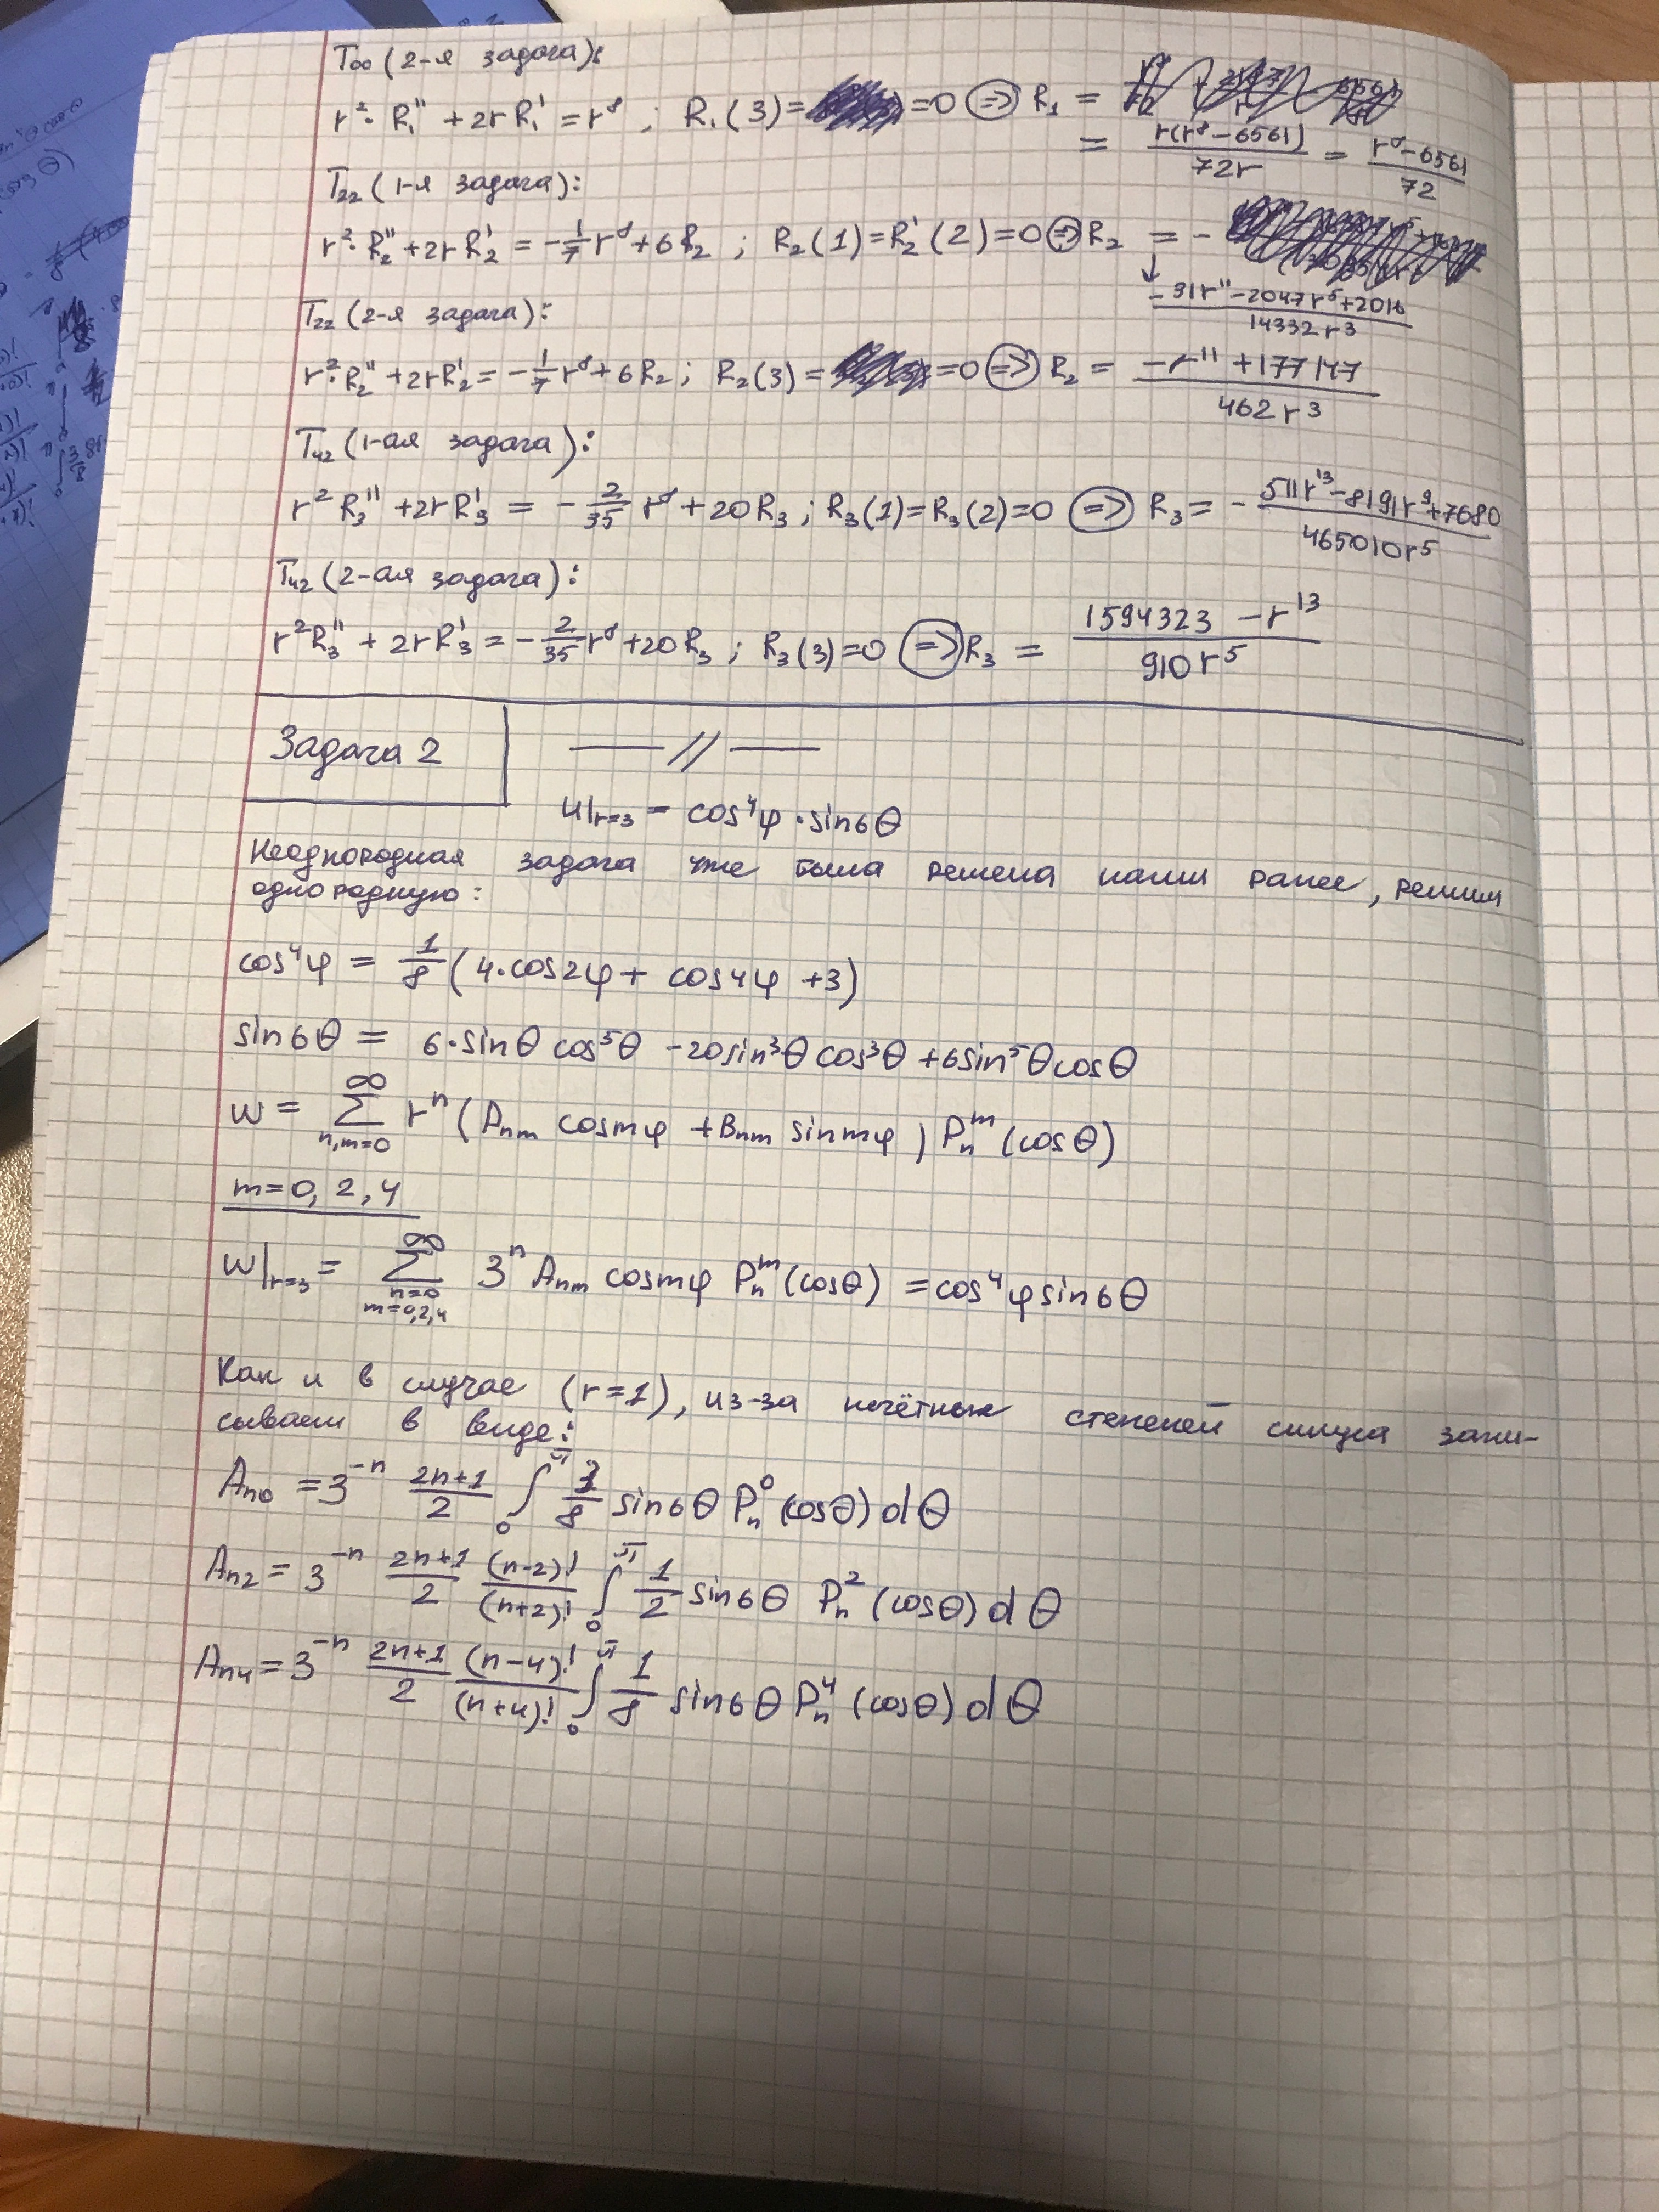 T₀₀ (2-я задача):
r²·R₁'' + 2rR₁' = r⁸ ; R₁(3) = =0 ⇒ R₁ =
= r(r⁸-6561)/72r = r⁸-6561/72
T₂₂ (1-я задача):
r²·R₂'' + 2rR₂' = -1/7 r⁸ + 6R₂ ; R₂(1)=R₂'(2)=0 ⇒ R₂ = -
↓ - 31r¹¹-2047r⁵+2016/14332r³
T₂₂ (2-я задача):
r²·R₂'' + 2rR₂' = -1/7 r⁸ + 6R₂ ; R₂(3) = =0 ⇒ R₂ = -r¹¹ + 177147/462r³
T₄₂ (1-ая задача):
r²R₃'' + 2rR₃' = -2/35 r⁸ + 20R₃ ; R₃(1)=R₃(2)=0 ⇒ R₃ = - 511r¹³-8191r⁹+7680/465010r⁵
T₄₂ (2-ая задача):
r²R₃'' + 2rR₃' = -2/35 r⁸ + 20R₃ ; R₃(3)=0 ⇒ R₃ = 1594323 - r¹³/910r⁵
Задача 2 —//—
u|r=3 = cos⁴φ·sin6θ
Неоднородная задача уже была решена нами ранее, решим
однородную:
cos⁴φ = 1/8 (4·cos2φ + cos4φ +3)
sin6θ = 6·sinθ cos⁵θ -20sin³θ cos³θ +6sin⁵θcosθ
w = ∞ Σ n,m=0 rⁿ (Aₙₘ cosmφ + Bₙₘ sinmφ) Pₙᵐ (cosθ)
m=0, 2, 4
w|r=3 = ∞ Σ n=0 m=0,2,4 3ⁿ Aₙₘ cosmφ Pₙᵐ (cosθ) = cos⁴φ sin6θ
Как и в случае (r=1), из-за нечётных степеней синуса запи-
сываем в виде:
Aₙ₀ = 3⁻ⁿ 2n+1/2 ∫₀^π 3/8 sin6θ Pₙ⁰ (cosθ) dθ
Aₙ₂ = 3⁻ⁿ 2n+1/2 (n-2)!/(n+2)! ∫₀^π 1/2 sin6θ Pₙ² (cosθ) dθ
Aₙ₄ = 3⁻ⁿ 2n+1/2 (n-4)!/(n+4)! ∫₀^π 1/8 sin6θ Pₙ⁴ (cosθ) dθ